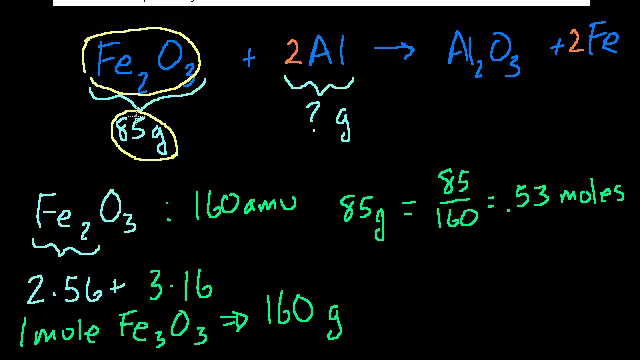 Fe₂O₃ + 2Al → Al₂O₃ + 2Fe
85g ? g
Fe₂O₃ : 160amu 85g = 85/160 = .53 moles
2·56+ 3·16
1mole Fe₃O₃ ⇒ 160 g